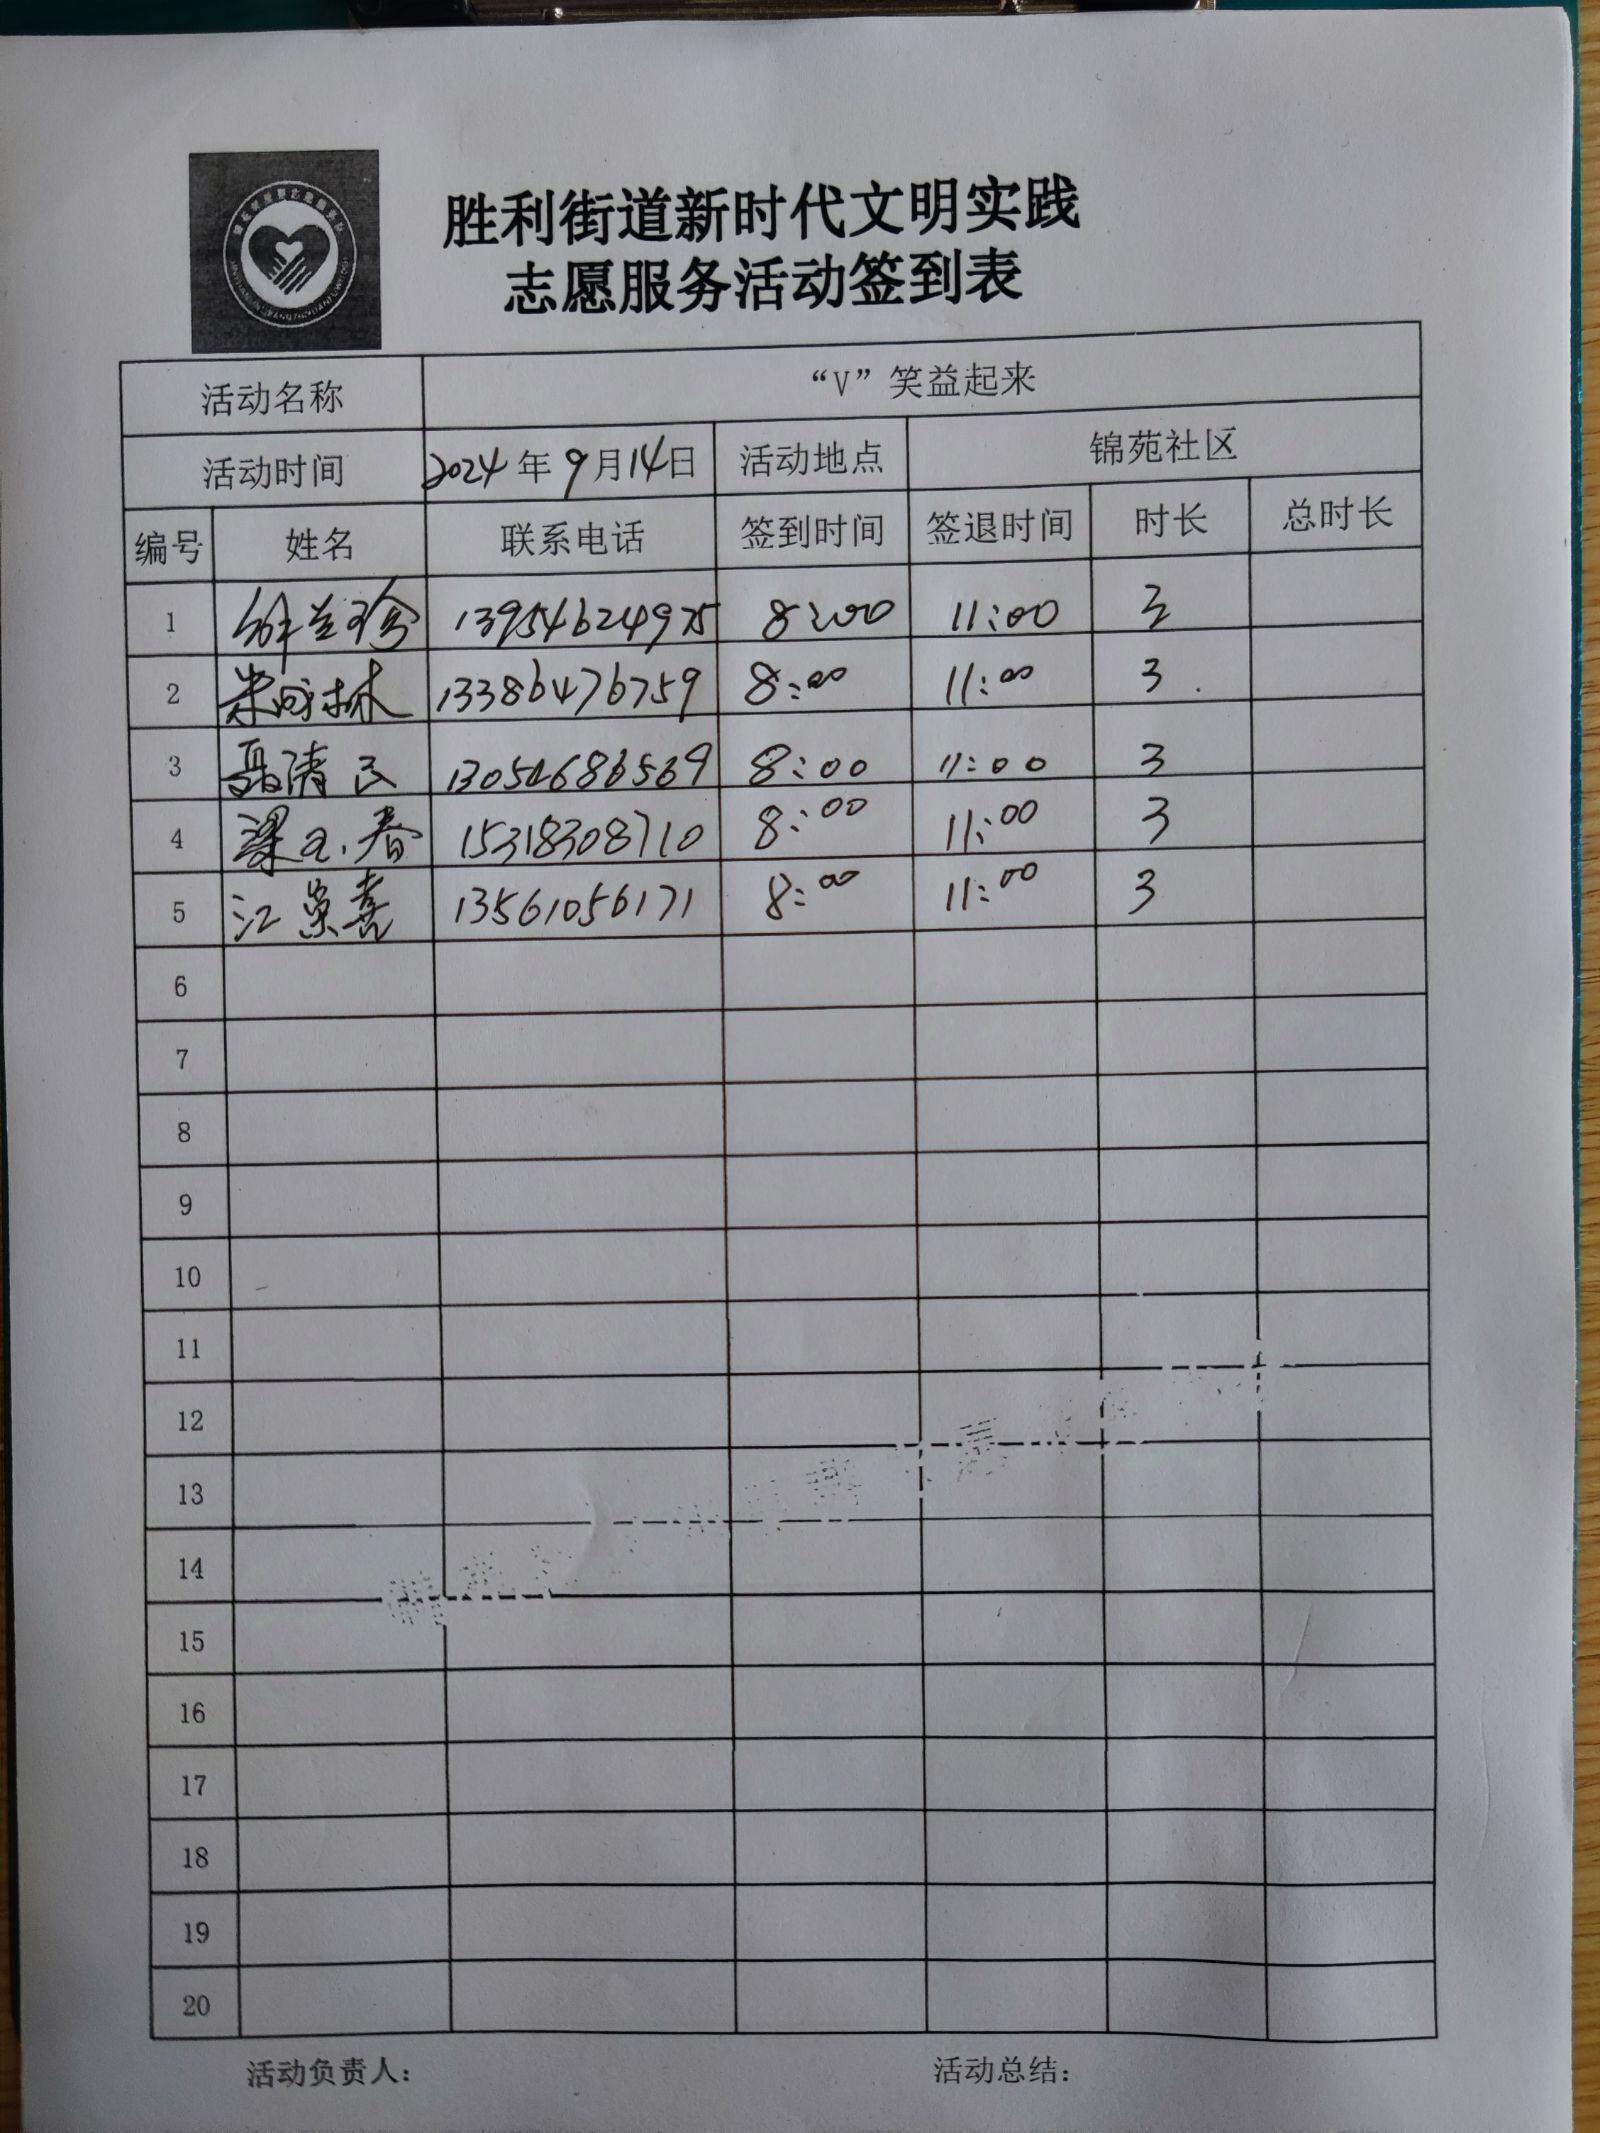 胜利街道新时代文明实践
志愿服务活动签到表
活动名称 “V”笑益起来
活动时间 2024年9月14日 活动地点 锦苑社区
编号 姓名 联系电话 签到时间 签退时间 时长 总时长
1 兰珍 13954624975 8:00 11:00 3
2 林 13386476759 8:00 11:00 3
3 聂清民 13054686569 8:00 11:00 3
4 梁玉春 15318308710 8:00 11:00 3
5 江荣喜 13561056171 8:00 11:00 3
6
7
8
9
10
11
12
13
14
15
16
17
18
19
20
活动负责人: 活动总结: